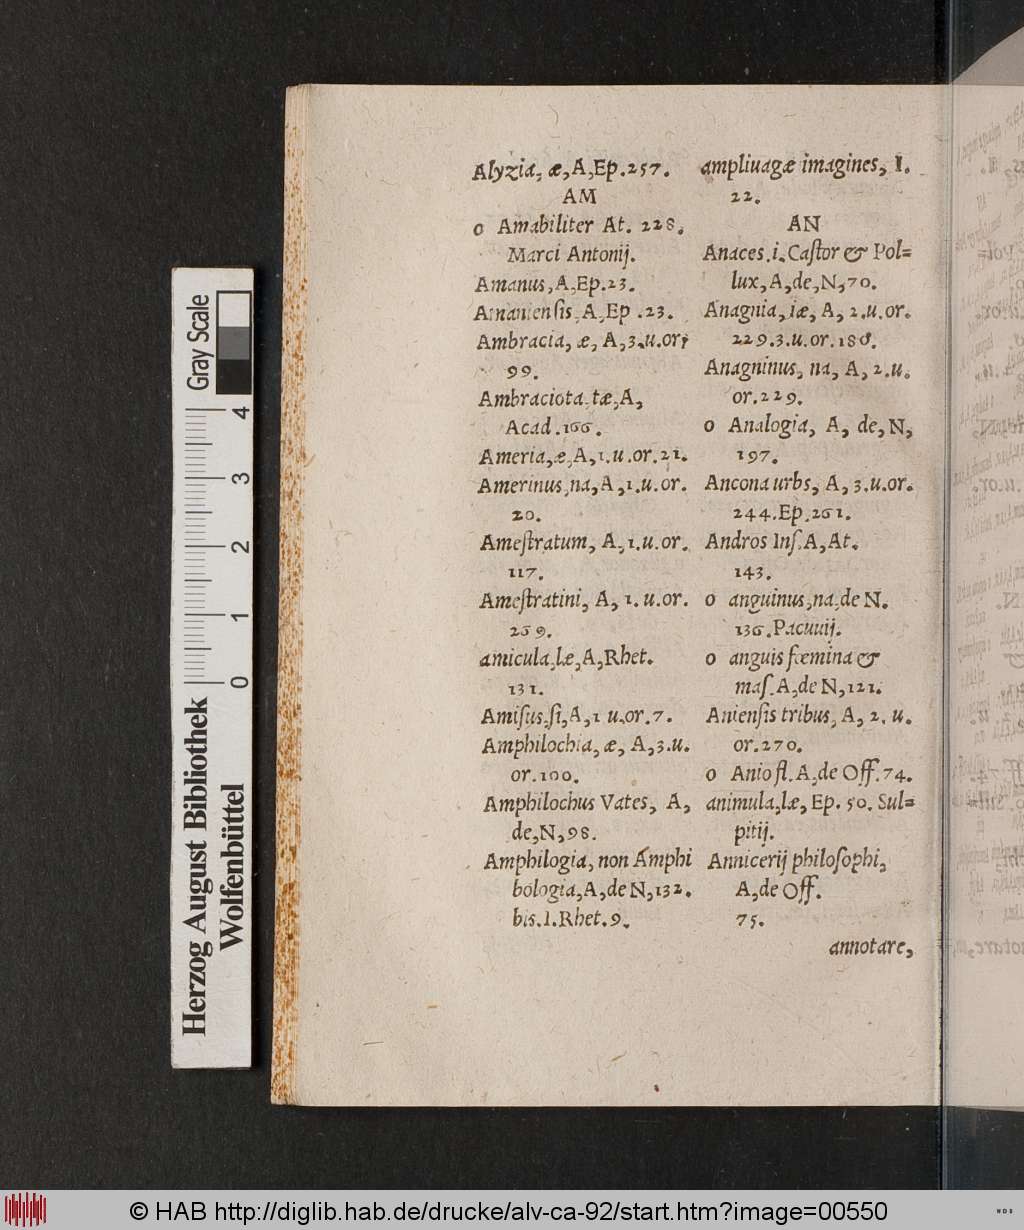 Alyzia, æ, A, Ep. 257.
AM
o Amabiliter At. 228.
Marci Antonij.
Amanus, A, Ep. 23.
Amaniensis, A, Ep. 23.
Ambracia, æ, A, 3. u. or,
99.
Ambraciota, tæ, A,
Acad. 166.
Ameria, æ, A, 1. u. or. 21.
Amerinus, na, A, 1. u. or.
20.
Ameſtratum, A, 1. u. or.
117.
Ameſtratini, A, 1. u. or.
269.
amicula, læ, A, Rhet.
131.
Amiſus, ſi, A, 1 u. or. 7.
Amphilochia, æ, A, 3. u.
or. 100.
Amphilochus Vates, A,
de, N, 98.
Amphilogia, non Amphi
bologia, A, de N, 132.
bis. 1. Rhet. 9.
ampliuagæ imagines, I.
22.
AN
Anaces. i. Caſtor & Pol=
lux, A, de, N, 70.
Anagnia, iæ, A, 2. u. or.
229. 3. u. or. 188.
Anagninus, na, A, 2. u.
or. 229.
o Analogia, A, de, N,
197.
Ancona urbs, A, 3. u. or.
244. Ep. 261.
Andros Inſ. A, At.
143.
o anguinus, na, de N.
136. Pacuuij.
o anguis fœmina &
maſ. A, de N, 121.
Anienſis tribus, A, 2. u.
or. 270.
o Anio fl. A, de Off. 74.
animula, læ, Ep. 50. Sul=
pitij.
Annicerij philoſophi,
A, de Off.
75.
annotare,
Gray Scale
0 1 2 3 4
Herzog August Bibliothek
Wolfenbüttel
© HAB http://diglib.hab.de/drucke/alv-ca-92/start.htm?image=00550